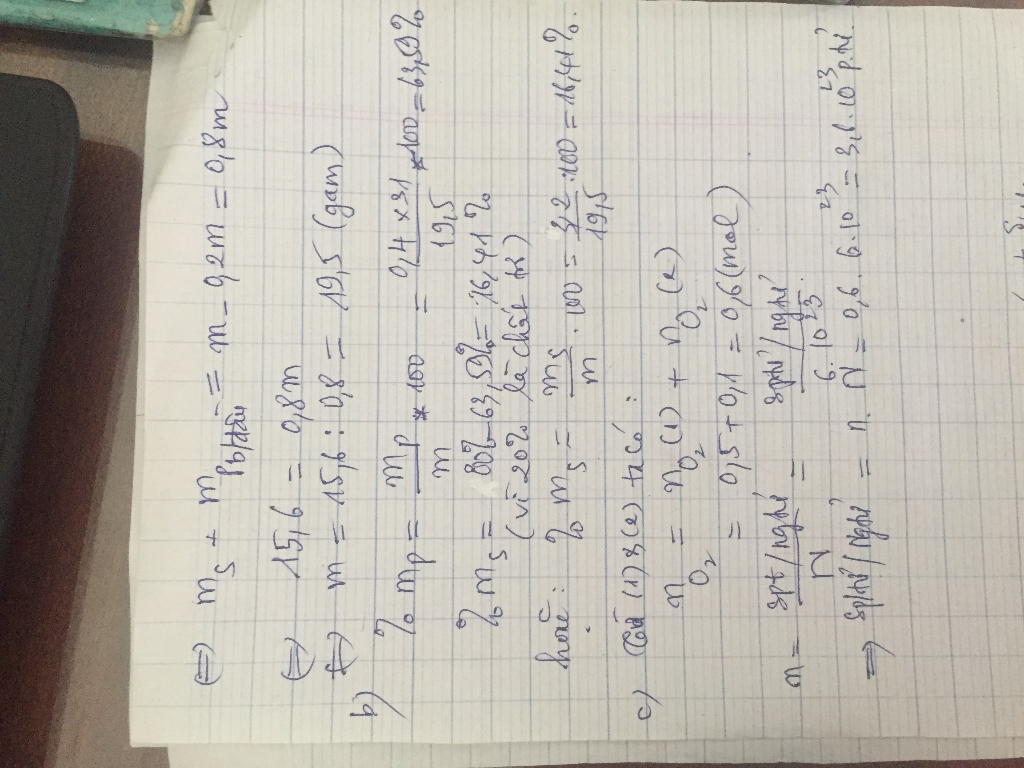 ⇔ mS + mP b/đầu = m - 0,2m = 0,8m
⇔ 15,6 = 0,8m
⇔ m = 15,6 : 0,8 = 19,5 (gam)
b) % mP = mP/m * 100 = 0,4 x 31/19,5 * 100 = 63,59%
% mS = 80% - 63,59% = 16,41%
(vì 20% là chất trơ)
hoặc: % mS = mS/m . 100 = 3,2/19,5 . 100 = 16,41%.
c) Từ (1) & (2) ta có:
nO2 = nO2(1) + nO2(2)
= 0,5 + 0,1 = 0,6 (mol)
n = spt/nghtử/N = sphtử/nghtử/6.10^23
⇒ sphtử/nghtử = n. N = 0,6 . 6.10^23 = 3,6.10^23 p.tử.